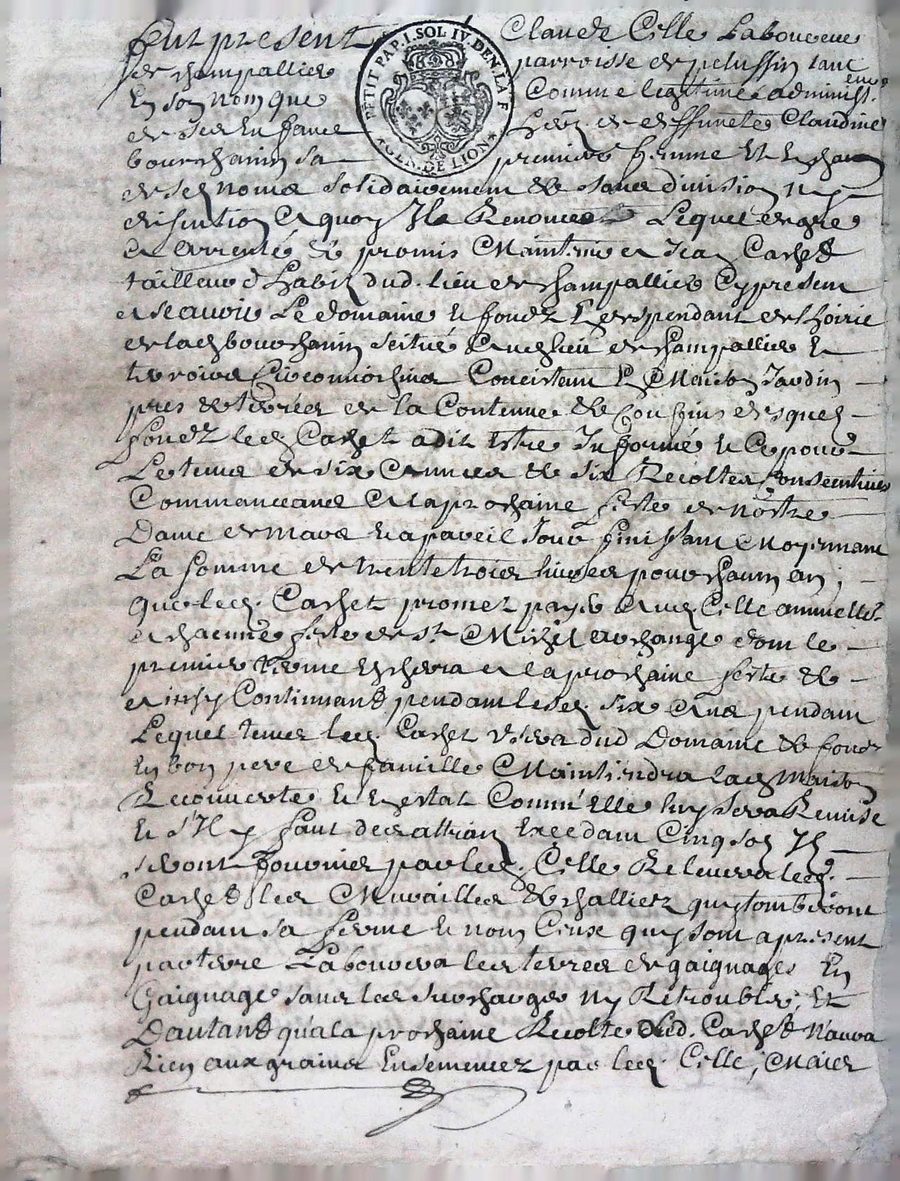 fut present Claude Cille Laboureur
de champallier parroisse de pelussin tant
En son nom que Comme legitime administ.
de ses Enfans de deffuncte Claudine
bourchanin sa premiere femme Et Echun
PETIT PAP. 1. SOL IV. DEN. LA F. GEN. DE LION
de ses noms solidairement & sans division ny
discution a quoy Ils Renonce Lequel de gré
a arrenté & promis Maintenir a Jean Cachet
tailleur d'habit dud. lieu de champallier Cy present
a scavoir Le domaine & fondz dependant de l'hoirie
de lad. bourchanin scitué aud. lieu de champallier &
terroirs Circonvoisins Concistant En Maison Jardin
pres & terres de la Contenue & Confins desquels
fondz led. Cachet a dit Estre Informé & Ce pour
Le temps de six années & six Recoltes Consecutives
Commanceans a la prochaine feste de nostre
Dame de mars & a pareil Jour finissant Moyennant
La somme de trente trois livres pour chaun an,
que led. Cachet promet payer aud. Cille annuellet.
a chacune feste de St Michel archange dont le
premier terme Eschera a la prochaine feste &
ainsy Continuant pendant lesd. six ans pendant
Lequel temps led. Cachet Usera dud. Domaine & fondz
En bon pere de famille Maintiendra lad. maison
Recouverte & En estat Comm'Elle luy sera Remise
& s'Il y faut des attrian Excedant Cinq sol Ils
seront fournis par led. Cille Relevera led.
Cachet les Murailles & challiers quy tomberont
pendant sa ferme & nom Ceux quy sont a present
par terre Labourera les terres de gaignages En
Gaignage sans les surcharger ny Retroubler, Et
Dautant qu'a la prochaine Recolte Led. Cachet N'aura
Rien aux grains Ensemencez par led. Cille, Mais